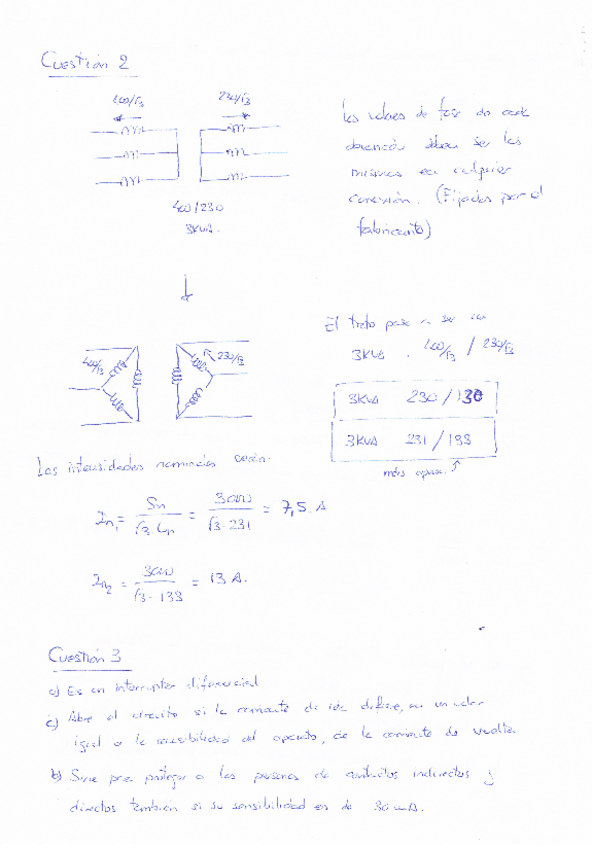 Cuestión 2
400/√3 230/√3
400/230
3KVA.
Los valores de fase de cada
devanado deben ser los
mismos en cualquier
conexión. (Fijados por el
fabricante)
El trafo pasa a ser un
3KVA . 400/√3 / 230/√3
400/√3 230/√3
3KVA 230/130
3KVA 231/133
más aprox.
Las intensidades nominales serán:
In1 = Sn / √3·Un = 3000 / √3·231 = 7,5 A
In2 = 3000 / √3·133 = 13 A.
Cuestión 3
a) Es un interruptor diferencial
c) Abre el circuito si la corriente de ida difiere, en un valor
igual a la sensibilidad del aparato, de la corriente de vuelta.
b) Sirve para proteger a las personas de contactos indirectos y
directos también si su sensibilidad es de 30 mA.